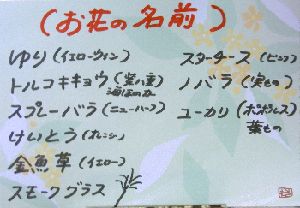 (お花の名前)
ゆり(イエローウィン)
トルコキキョウ(
海ほのか
スプレーバラ(ニューハーフ)
けいとう(オレンジ)
金魚草(イエロー)
スモークグラス
スターチース(ピンク)
ノバラ(実もの)
ユーカリ(ポポラス)
葉もの